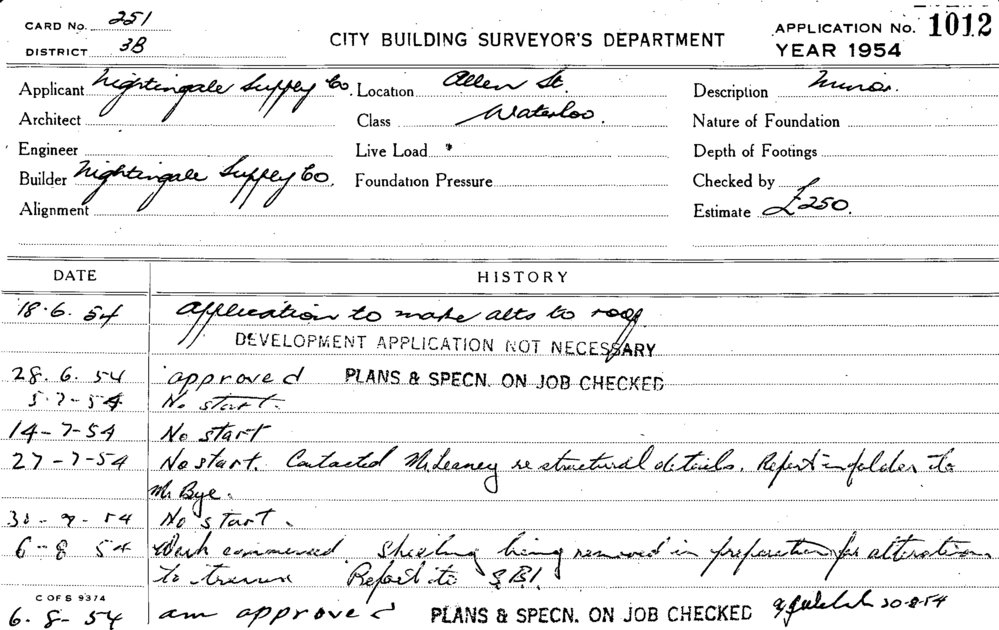 CARD No. 251
DISTRICT 3B
CITY BUILDING SURVEYOR'S DEPARTMENT
APPLICATION No. 1012
YEAR 1954
Applicant Nightingale Supply Co. Location Allen St. Description Minor.
Architect Class Waterloo. Nature of Foundation
Engineer Live Load Depth of Footings
Builder Nightingale Supply Co. Foundation Pressure Checked by
Alignment Estimate £250.
DATE HISTORY
18.6.54 Application to make alts to roof
DEVELOPMENT APPLICATION NOT NECESSARY
28.6.54 approved PLANS & SPECN. ON JOB CHECKED
5-7-54 No start.
14-7-54 No start
27-7-54 No start. Contacted Mr Leaney re structural details. Report in folder to
Mr Bye.
No start.
6-8 54 Work commenced Sheeting being removed in preparation for alterations
to Report to
C OF S 9374
6-8-54 am approved PLANS & SPECN. ON JOB CHECKED 20-8-54